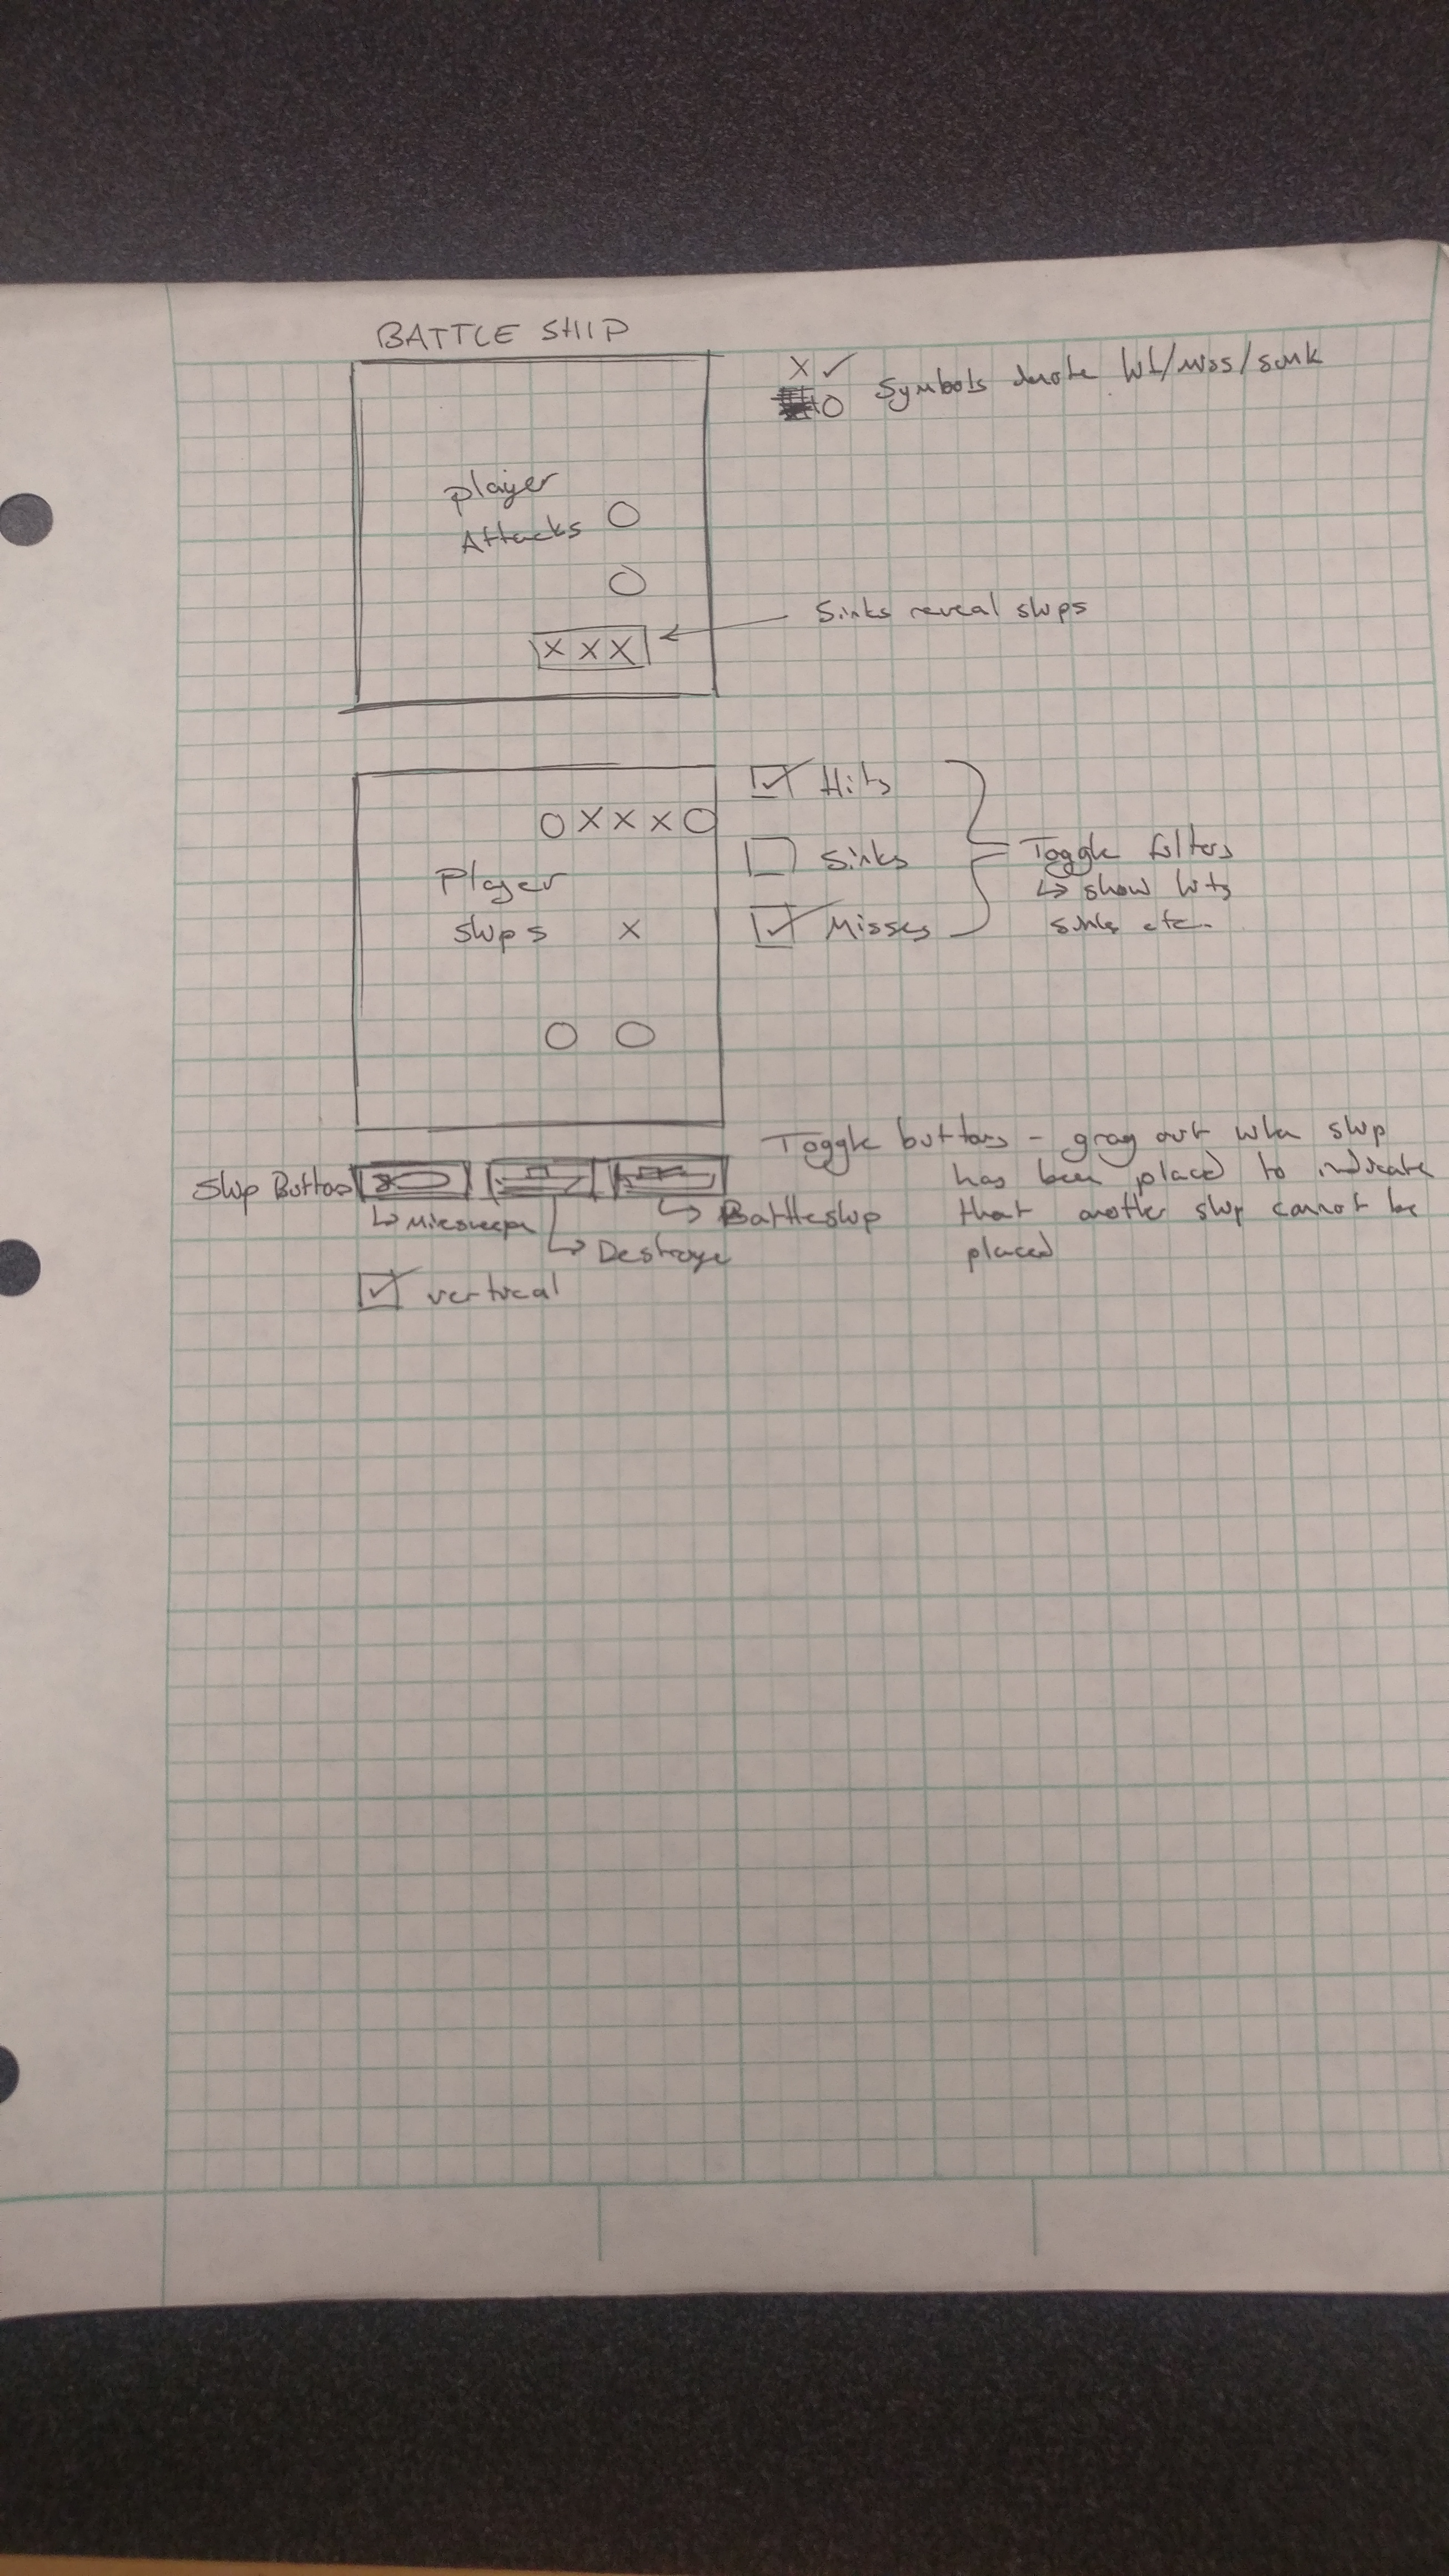 BATTLE SHIP
X ✓
O Symbols denote hit/miss/sunk
Player
Attacks O
O
X X X
Sinks reveal ships
O X X X O
Player
Ships X
O O
Hits
Sinks
Misses
Toggle filters
↳ show hits
sinks etc.
Ship Buttons
↳ Minesweeper
↳ Destroyer
↳ Battleship
vertical
Toggle buttons - gray out when ship
has been placed to indicate
that another ship cannot be
placed